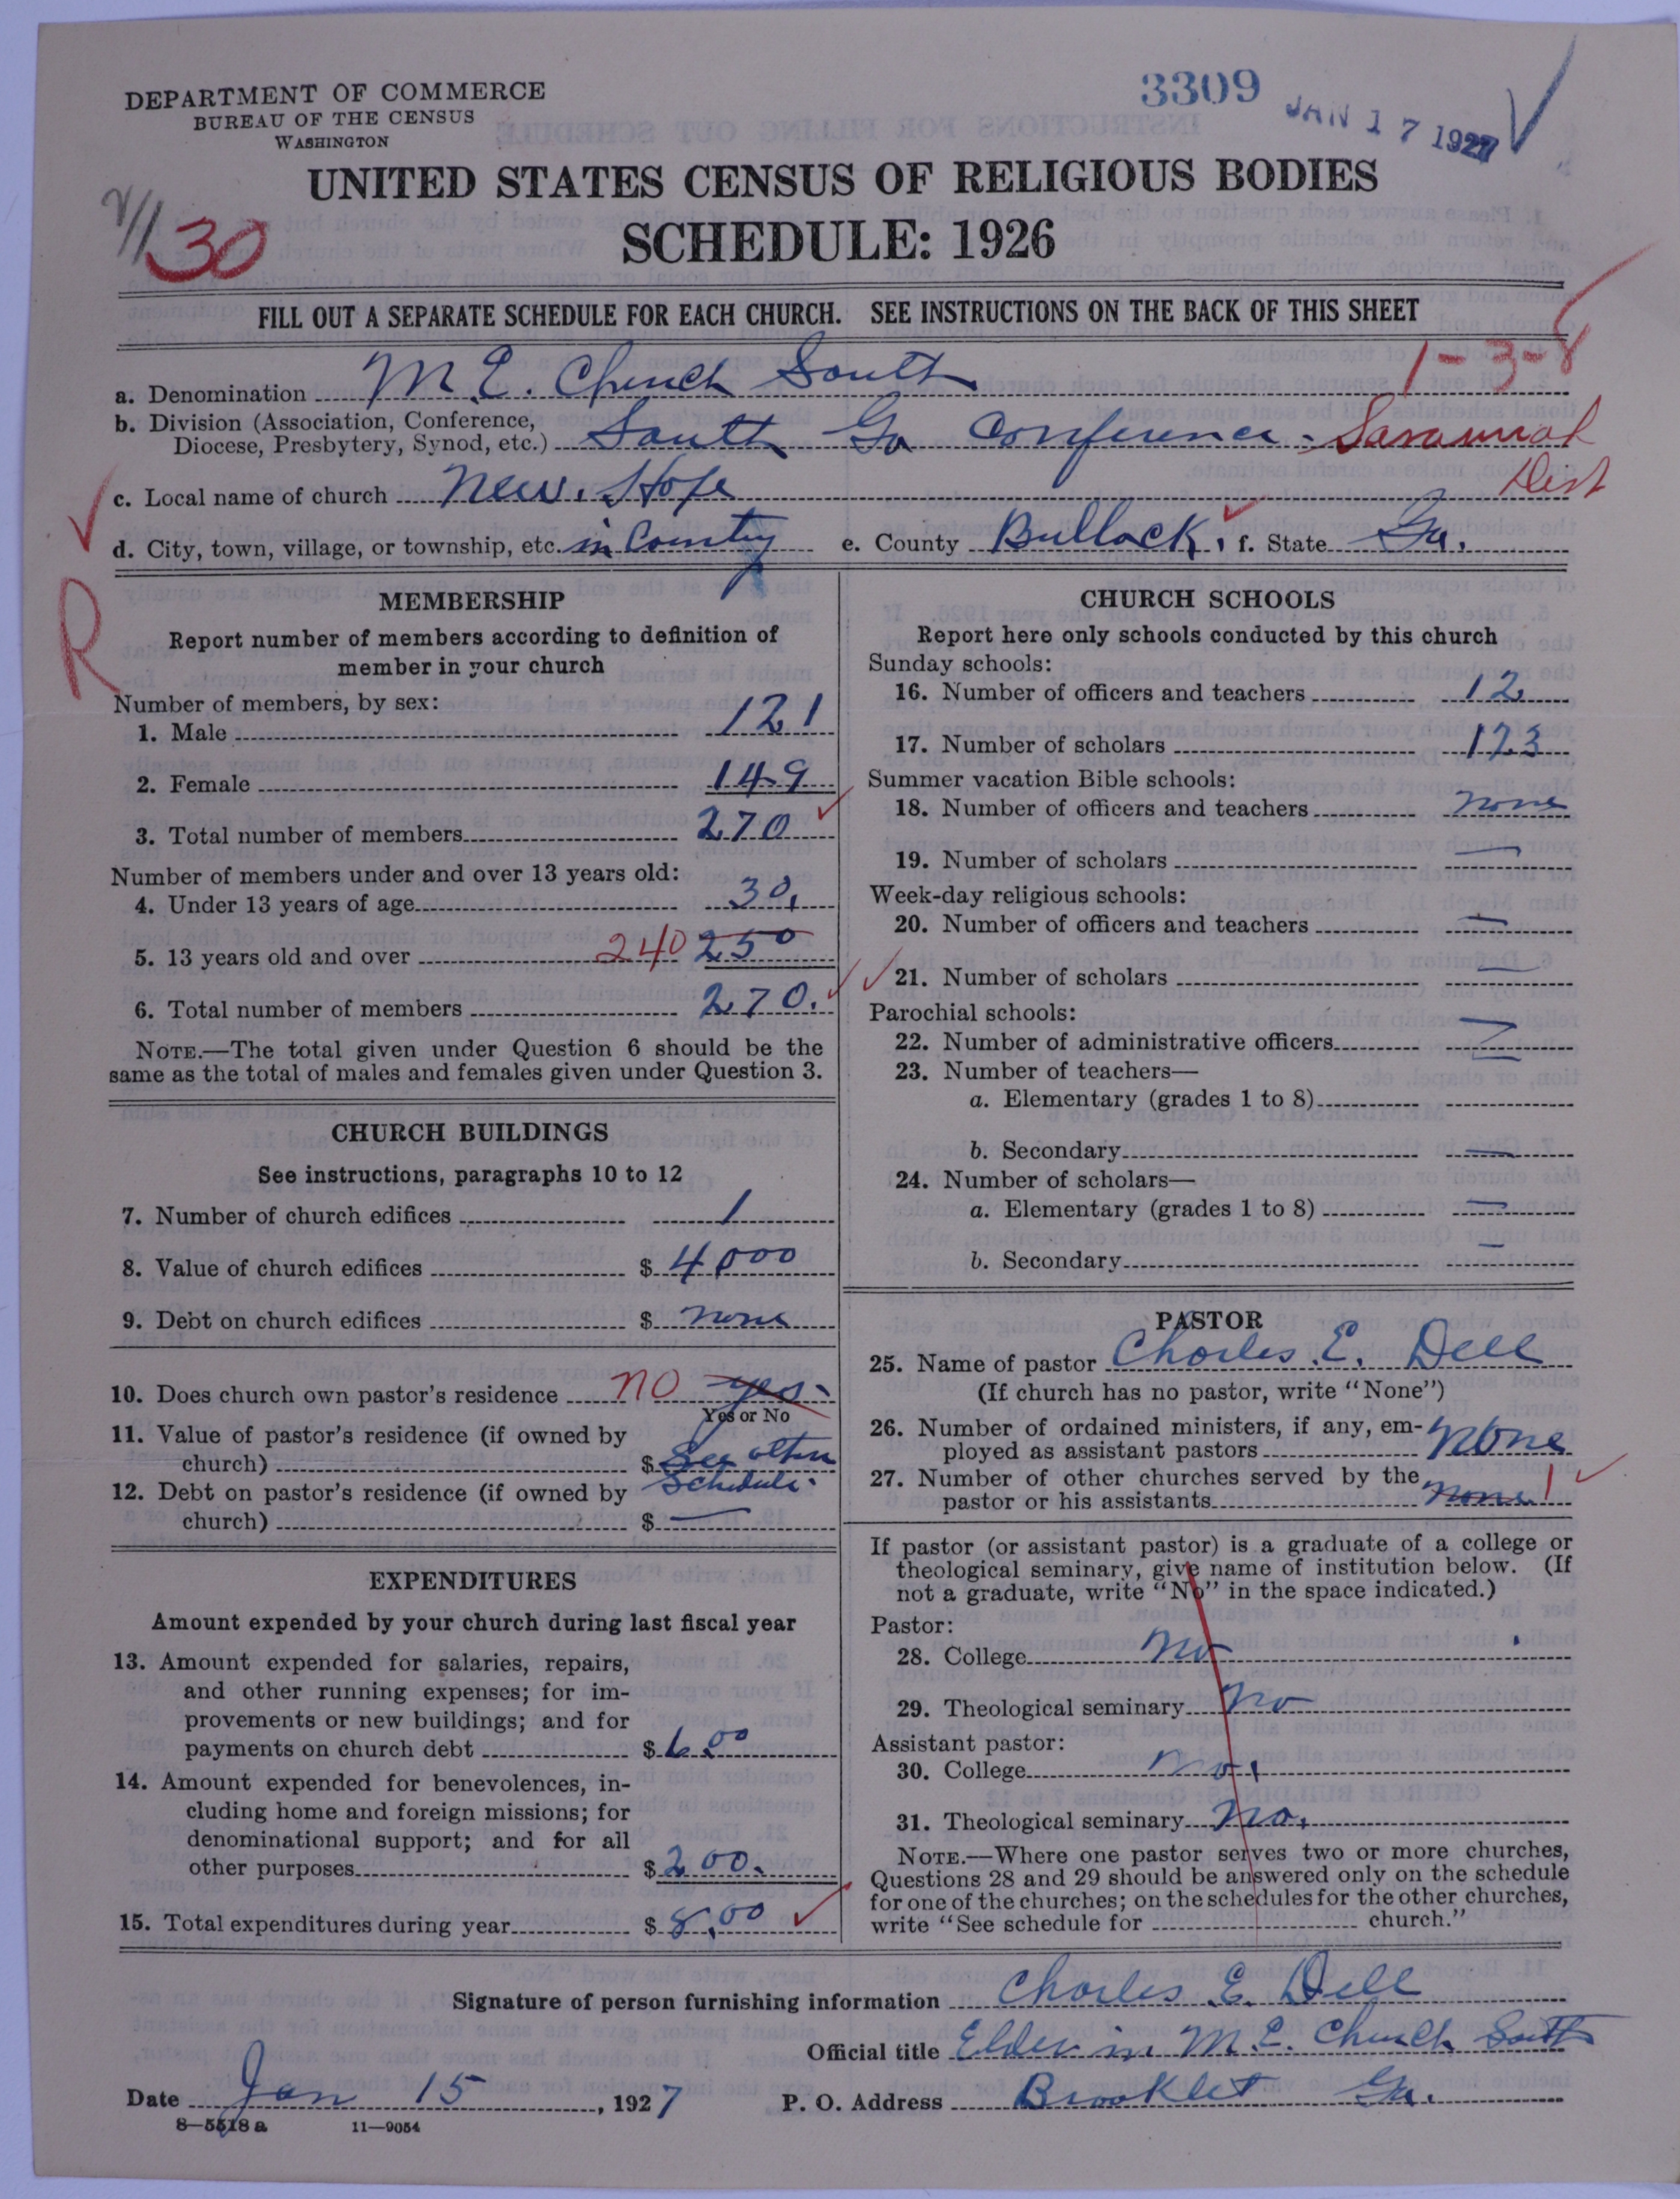 DEPARTMENT OF COMMERCE
BUREAU OF THE CENSUS
WASHINGTON
3309
JAN 17 1927
UNITED STATES CENSUS OF RELIGIOUS BODIES
SCHEDULE: 1926
30
FILL OUT A SEPARATE SCHEDULE FOR EACH CHURCH. SEE INSTRUCTIONS ON THE BACK OF THIS SHEET
1-3-8
a. Denomination M. E. Church South
b. Division (Association, Conference,
Diocese, Presbytery, Synod, etc.) South Ga Conference - Savannah
Dist
c. Local name of church New Hope
d. City, town, village, or township, etc. in Country e. County Bullock, f. State Ga.
R
MEMBERSHIP
Report number of members according to definition of
member in your church
Number of members, by sex:
1. Male 121
2. Female 149
3. Total number of members 270
Number of members under and over 13 years old:
4. Under 13 years of age 30
5. 13 years old and over 240 250
6. Total number of members 270.
NOTE.—The total given under Question 6 should be the
same as the total of males and females given under Question 3.
CHURCH BUILDINGS
See instructions, paragraphs 10 to 12
7. Number of church edifices 1
8. Value of church edifices $ 4000
9. Debt on church edifices $ none
10. Does church own pastor's residence no yes
Yes or No
11. Value of pastor's residence (if owned by
church) $ See other
Schedule.
12. Debt on pastor's residence (if owned by
church) $ —
EXPENDITURES
Amount expended by your church during last fiscal year
13. Amount expended for salaries, repairs,
and other running expenses; for im-
provements or new buildings; and for
payments on church debt $ 6.00
14. Amount expended for benevolences, in-
cluding home and foreign missions; for
denominational support; and for all
other purposes $ 2 00.
15. Total expenditures during year $ 8.00
CHURCH SCHOOLS
Report here only schools conducted by this church
Sunday schools:
16. Number of officers and teachers 12
17. Number of scholars 123
Summer vacation Bible schools:
18. Number of officers and teachers none
19. Number of scholars —
Week-day religious schools:
20. Number of officers and teachers —
21. Number of scholars —
Parochial schools:
22. Number of administrative officers —
23. Number of teachers—
a. Elementary (grades 1 to 8)
b. Secondary —
24. Number of scholars—
a. Elementary (grades 1 to 8) —
b. Secondary —
PASTOR
25. Name of pastor Charles E. Dell
(If church has no pastor, write "None")
26. Number of ordained ministers, if any, em-
ployed as assistant pastors none
27. Number of other churches served by the
pastor or his assistants none 1
If pastor (or assistant pastor) is a graduate of a college or
theological seminary, give name of institution below. (If
not a graduate, write "No" in the space indicated.)
Pastor:
28. College no
29. Theological seminary no
Assistant pastor:
30. College no.
31. Theological seminary no.
NOTE.—Where one pastor serves two or more churches,
Questions 28 and 29 should be answered only on the schedule
for one of the churches; on the schedules for the other churches,
write "See schedule for church."
Signature of person furnishing information Charles E. Dell
Official title Elder in M. E. Church South
Date Jan 15, 1927 P. O. Address Brooklet Ga.
8—5518 a 11—9054